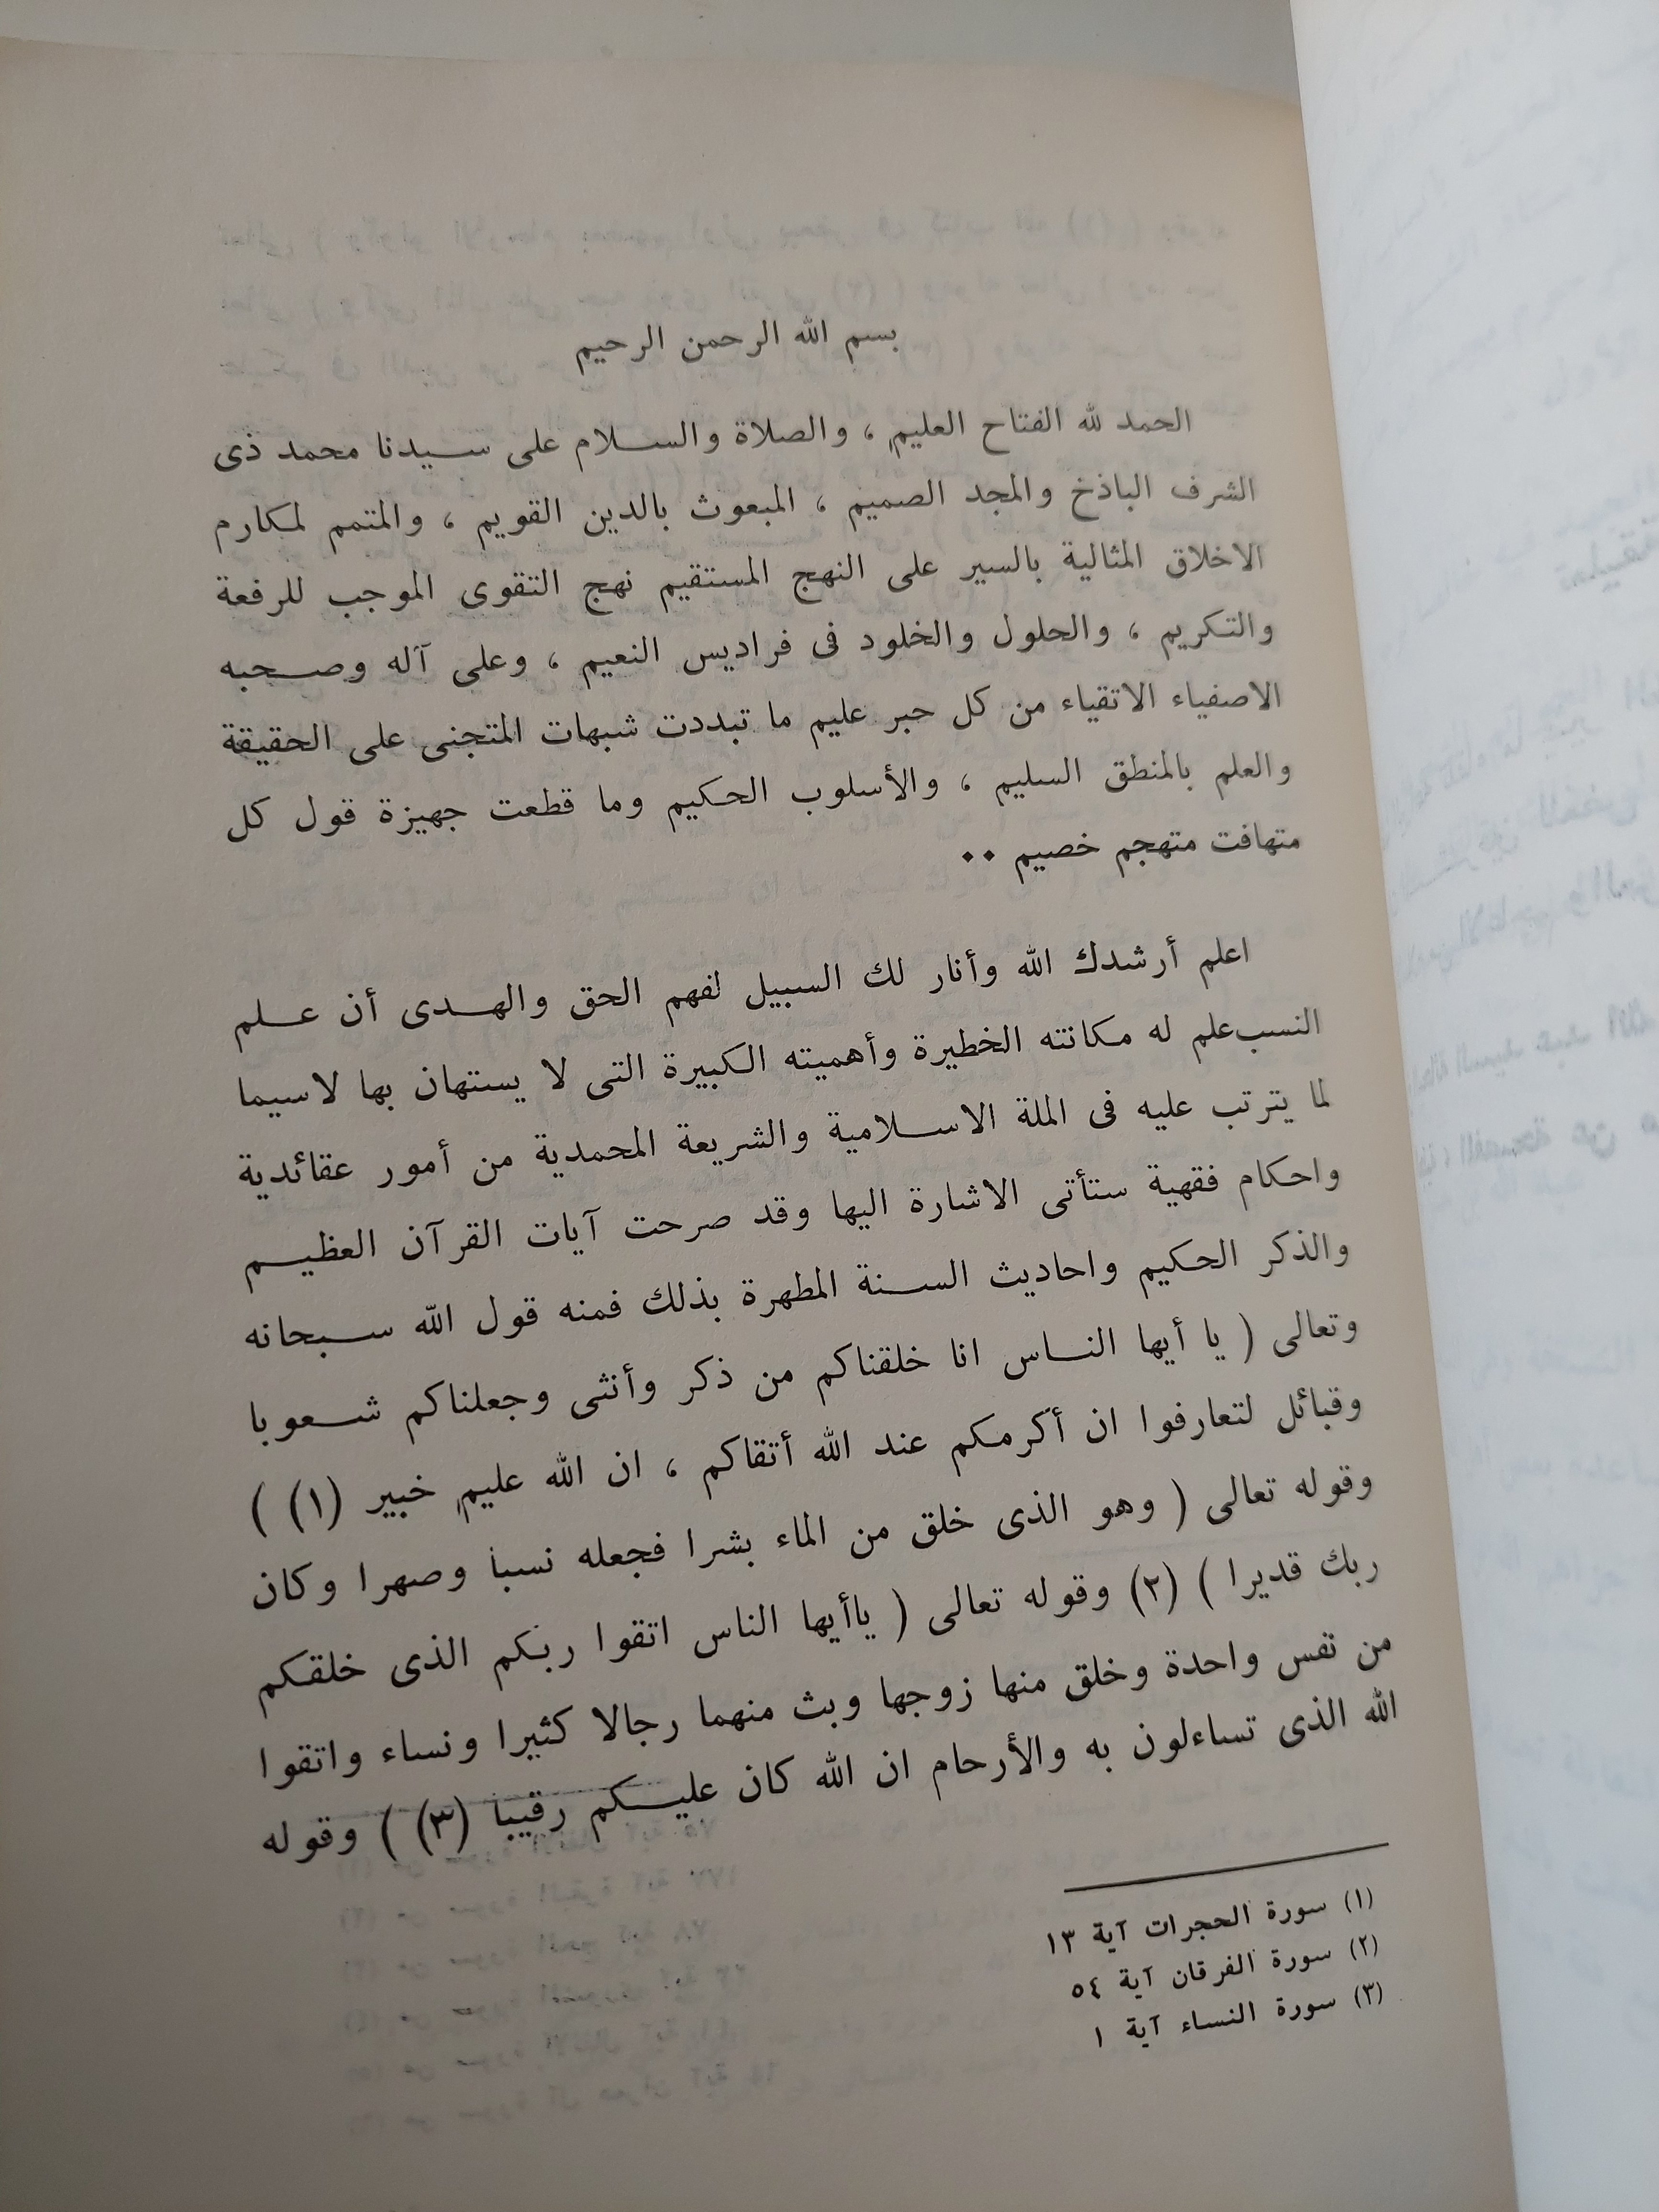 بسم الله الرحمن الرحيم
الحمد لله الفتاح العليم ، والصلاة والسلام على سيدنا محمد ذى
الشرف الباذخ والمجد الصميم ، المبعوث بالدين القويم ، والمتمم لمكارم
الاخلاق المثالية بالسير على النهج المستقيم نهج التقوى الموجب للرفعة
والتكريم ، والحلول والخلود فى فراديس النعيم ، وعلى آله وصحبه
الاصفياء الاتقياء من كل حبر عليم ما تبددت شبهات المتجنى على الحقيقة
والعلم بالمنطق السليم ، والأسلوب الحكيم وما قطعت جهيزة قول كل
متهافت متهجم خصيم ٠٠
اعلم أرشدك الله وأنار لك السبيل لفهم الحق والهدى أن علم
النسب علم له مكانته الخطيرة وأهميته الكبيرة التى لا يستهان بها لاسيما
لما يترتب عليه فى الملة الاسلامية والشريعة المحمدية من أمور عقائدية
واحكام فقهية ستأتى الاشارة اليها وقد صرحت آيات القرآن العظيم
والذكر الحكيم واحاديث السنة المطهرة بذلك فمنه قول الله سبحانه
وتعالى ( يا أيها الناس انا خلقناكم من ذكر وأنثى وجعلناكم شعوبا
وقبائل لتعارفوا ان أكرمكم عند الله أتقاكم ، ان الله عليم خبير (١) )
وقوله تعالى ( وهو الذى خلق من الماء بشرا فجعله نسبا وصهرا وكان
ربك قديرا ) (٢) وقوله تعالى ( ياأيها الناس اتقوا ربكم الذى خلقكم
من نفس واحدة وخلق منها زوجها وبث منهما رجالا كثيرا ونساء واتقوا
الله الذى تساءلون به والأرحام ان الله كان عليكم رقيبا (٣) ) وقوله
(١) سورة الحجرات آية ١٣
(٢) سورة الفرقان آية ٥٤
(٣) سورة النساء آية ١